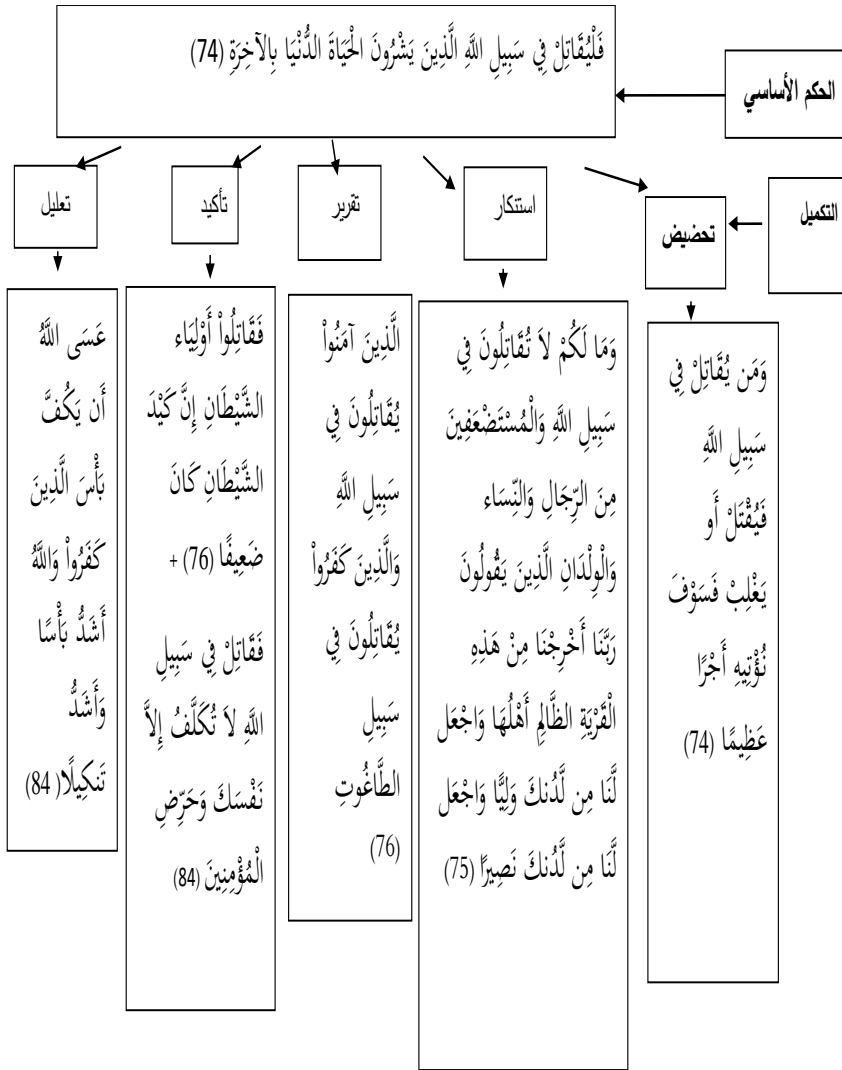 فَلْيُقَاتِلْ فِي سَبِيلِ اللَّهِ الَّذِينَ يَشْرُونَ الْحَيَاةَ الدُّنْيَا بِالآخِرَةِ (74)
الحكم الأساسي
التكميل
تحضيض
استنكار
تقرير
تأكيد
تعليل
وَمَن يُقَاتِلْ فِي
سَبِيلِ اللَّهِ
فَيُقْتَلْ أَو
يَغْلِبْ فَسَوْفَ
نُؤْتِيهِ أَجْرًا
عَظِيمًا (74)
وَمَا لَكُمْ لاَ تُقَاتِلُونَ فِي
سَبِيلِ اللَّهِ وَالْمُسْتَضْعَفِينَ
مِنَ الرِّجَالِ وَالنِّسَاء
وَالْوِلْدَانِ الَّذِينَ يَقُولُونَ
رَبَّنَا أَخْرِجْنَا مِنْ هَذِهِ
الْقَرْيَةِ الظَّالِمِ أَهْلُهَا وَاجْعَل
لَّنَا مِن لَّدُنكَ وَلِيًّا وَاجْعَل
لَّنَا مِن لَّدُنكَ نَصِيرًا (75)
الَّذِينَ آمَنُواْ
يُقَاتِلُونَ فِي
سَبِيلِ اللَّهِ
وَالَّذِينَ كَفَرُواْ
يُقَاتِلُونَ فِي
سَبِيلِ
الطَّاغُوتِ
(76)
فَقَاتِلُواْ أَوْلِيَاء
الشَّيْطَانِ إِنَّ كَيْدَ
الشَّيْطَانِ كَانَ
ضَعِيفًا (76) +
فَقَاتِلْ فِي سَبِيلِ
اللَّهِ لاَ تُكَلَّفُ إِلاَّ
نَفْسَكَ وَحَرِّضِ
الْمُؤْمِنِينَ (84)
عَسَى اللَّهُ
أَن يَكُفَّ
بَأْسَ الَّذِينَ
كَفَرُواْ وَاللَّهُ
أَشَدُّ بَأْسًا
وَأَشَدُّ
تَنكِيلًا( 84)